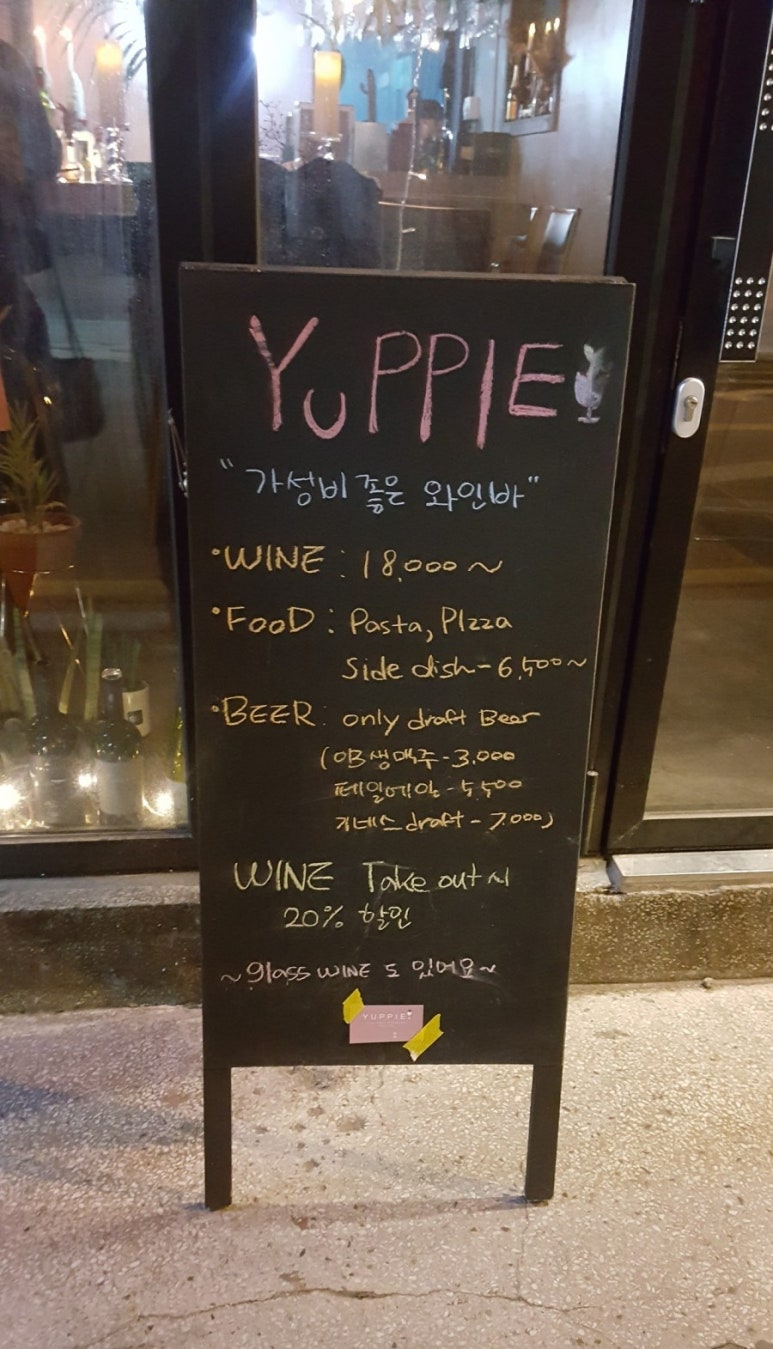 YuPPIE
"가성비 좋은 와인바"
·WINE : 18,000~
·FOOD : Pasta, PIzza
Side dish - 6,500~
·BEER : only draft Beer
(OB생맥주-3.000
페일에일-5,500
기네스 draft - 7.000)
WINE Take out시
20% 할인
~glass WINE 도 있어요~
YUPPIE